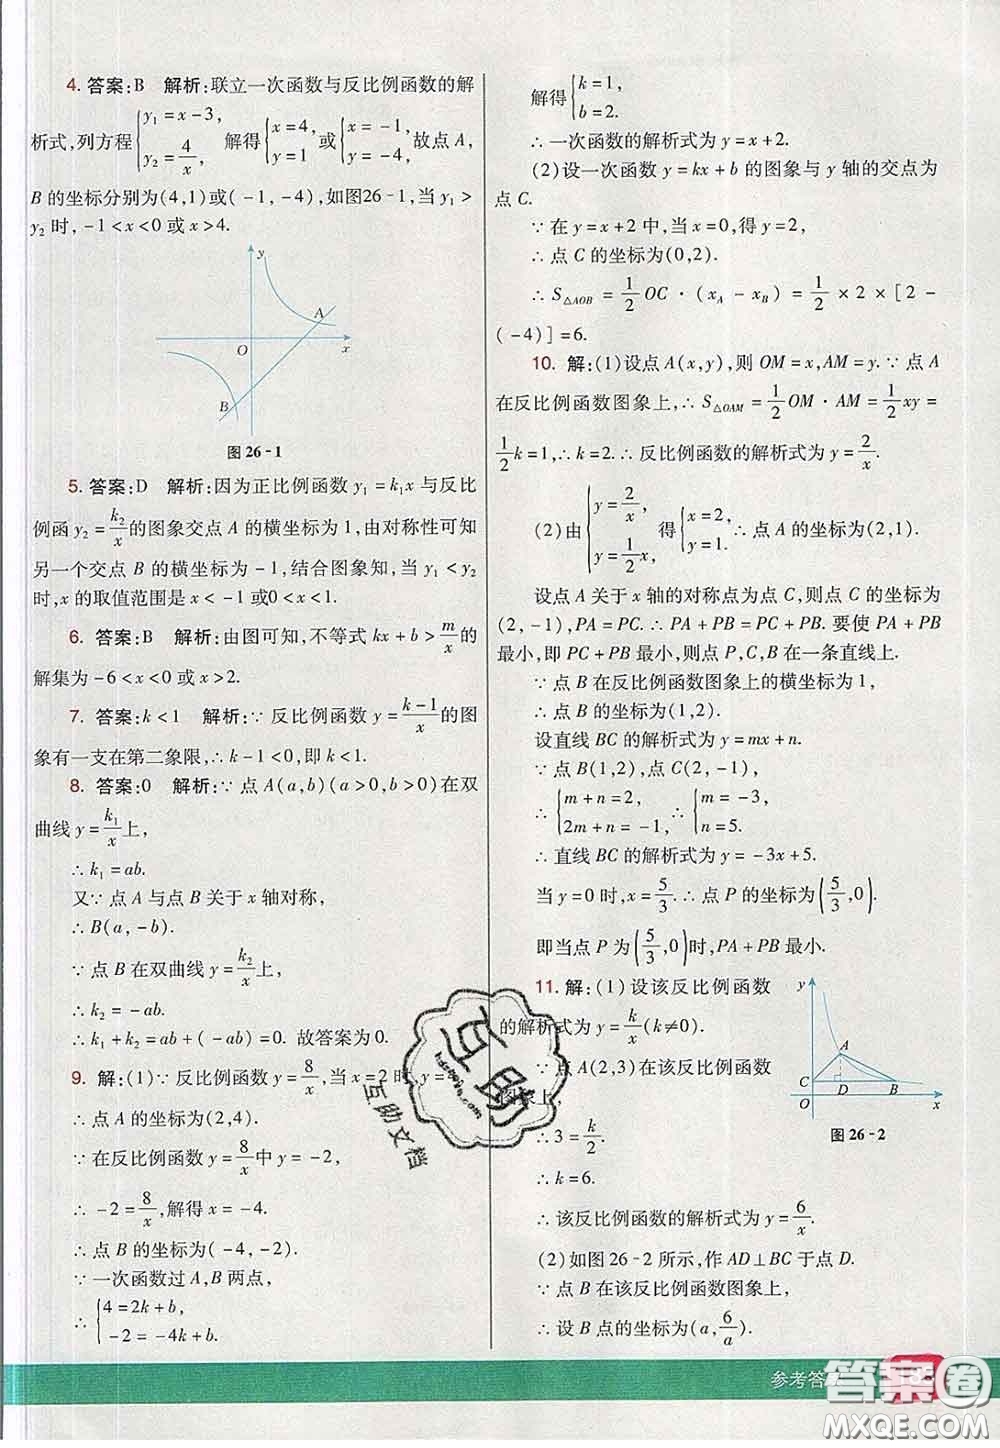 4. 答案:B 解析:联立一次函数与反比例函数的解
析式,列方程{y₁=x-3, y₂=4/x, 解得{x=4, y=1 或{x=-1, y=-4, 故点A,
B的坐标分别为(4,1)或(-1,-4),如图26-1,当y₁>
y₂时,-1<x<0或x>4.
y
A
O
x
B
图26-1
5. 答案:D 解析:因为正比例函数y₁=k₁x与反比
例函y₂=k₂/x的图象交点A的横坐标为1,由对称性可知
另一个交点B的横坐标为-1,结合图象知,当y₁<y₂
时,x的取值范围是x<-1或0<x<1.
6. 答案:B 解析:由图可知,不等式kx+b>m/x的
解集为-6<x<0或x>2.
7. 答案:k<1 解析:∵反比例函数y=(k-1)/x的图
象有一支在第二象限,∴k-1<0,即k<1.
8. 答案:0 解析:∵点A(a,b)(a>0,b>0)在双
曲线y=k₁/x上,
∴k₁=ab.
又∵点A与点B关于x轴对称,
∴B(a,-b).
∵点B在双曲线y=k₂/x上,
∴k₂=-ab.
∴k₁+k₂=ab+(-ab)=0. 故答案为0.
9. 解:(1)∵反比例函数y=8/x,当x=2时,y=
∴点A的坐标为(2,4).
∵在反比例函数y=8/x中y=-2,
∴-2=8/x,解得x=-4.
∴点B的坐标为(-4,-2).
∵一次函数过A,B两点,
∴{4=2k+b, -2=-4k+b.
解得{k=1, b=2.
∴一次函数的解析式为y=x+2.
(2)设一次函数y=kx+b的图象与y轴的交点为
点C.
∵在y=x+2中,当x=0,得y=2,
∴点C的坐标为(0,2).
∴S△AOB=1/2OC·(xA-xB)=1/2×2×[2-
(-4)]=6.
10. 解:(1)设点A(x,y),则OM=x,AM=y.∵点A
在反比例函数图象上,∴S△OAM=1/2OM·AM=1/2xy=
1/2k=1,∴k=2.∴反比例函数的解析式为y=2/x.
(2)由{y=2/x, y=1/2x, 得{x=2, y=1. ∴点A的坐标为(2,1).
设点A关于x轴的对称点为点C,则点C的坐标为
(2,-1),PA=PC.∴PA+PB=PC+PB.要使PA+PB
最小,即PC+PB最小,则点P,C,B在一条直线上.
∵点B在反比例函数图象上的横坐标为1,
∴点B的坐标为(1,2).
设直线BC的解析式为y=mx+n.
∵点B(1,2),点C(2,-1),
∴{m+n=2, 2m+n=-1, ∴{m=-3, n=5.
∴直线BC的解析式为y=-3x+5.
当y=0时,x=5/3.∴点P的坐标为(5/3,0).
即当点P为(5/3,0)时,PA+PB最小.
11. 解:(1)设该反比例函数
的解析式为y=k/x(k≠0).
∵点A(2,3)在该反比例函数
图象上,
∴3=k/2.
∴k=6.
∴该反比例函数的解析式为y=6/x.
y
A
C
D
B
O
x
图26-2
(2)如图26-2所示,作AD⊥BC于点D.
∵点B在该反比例函数图象上,
∴设B点的坐标为(a,6/a).
互助
互助文档
参考答
答案卷
MXQE.COM